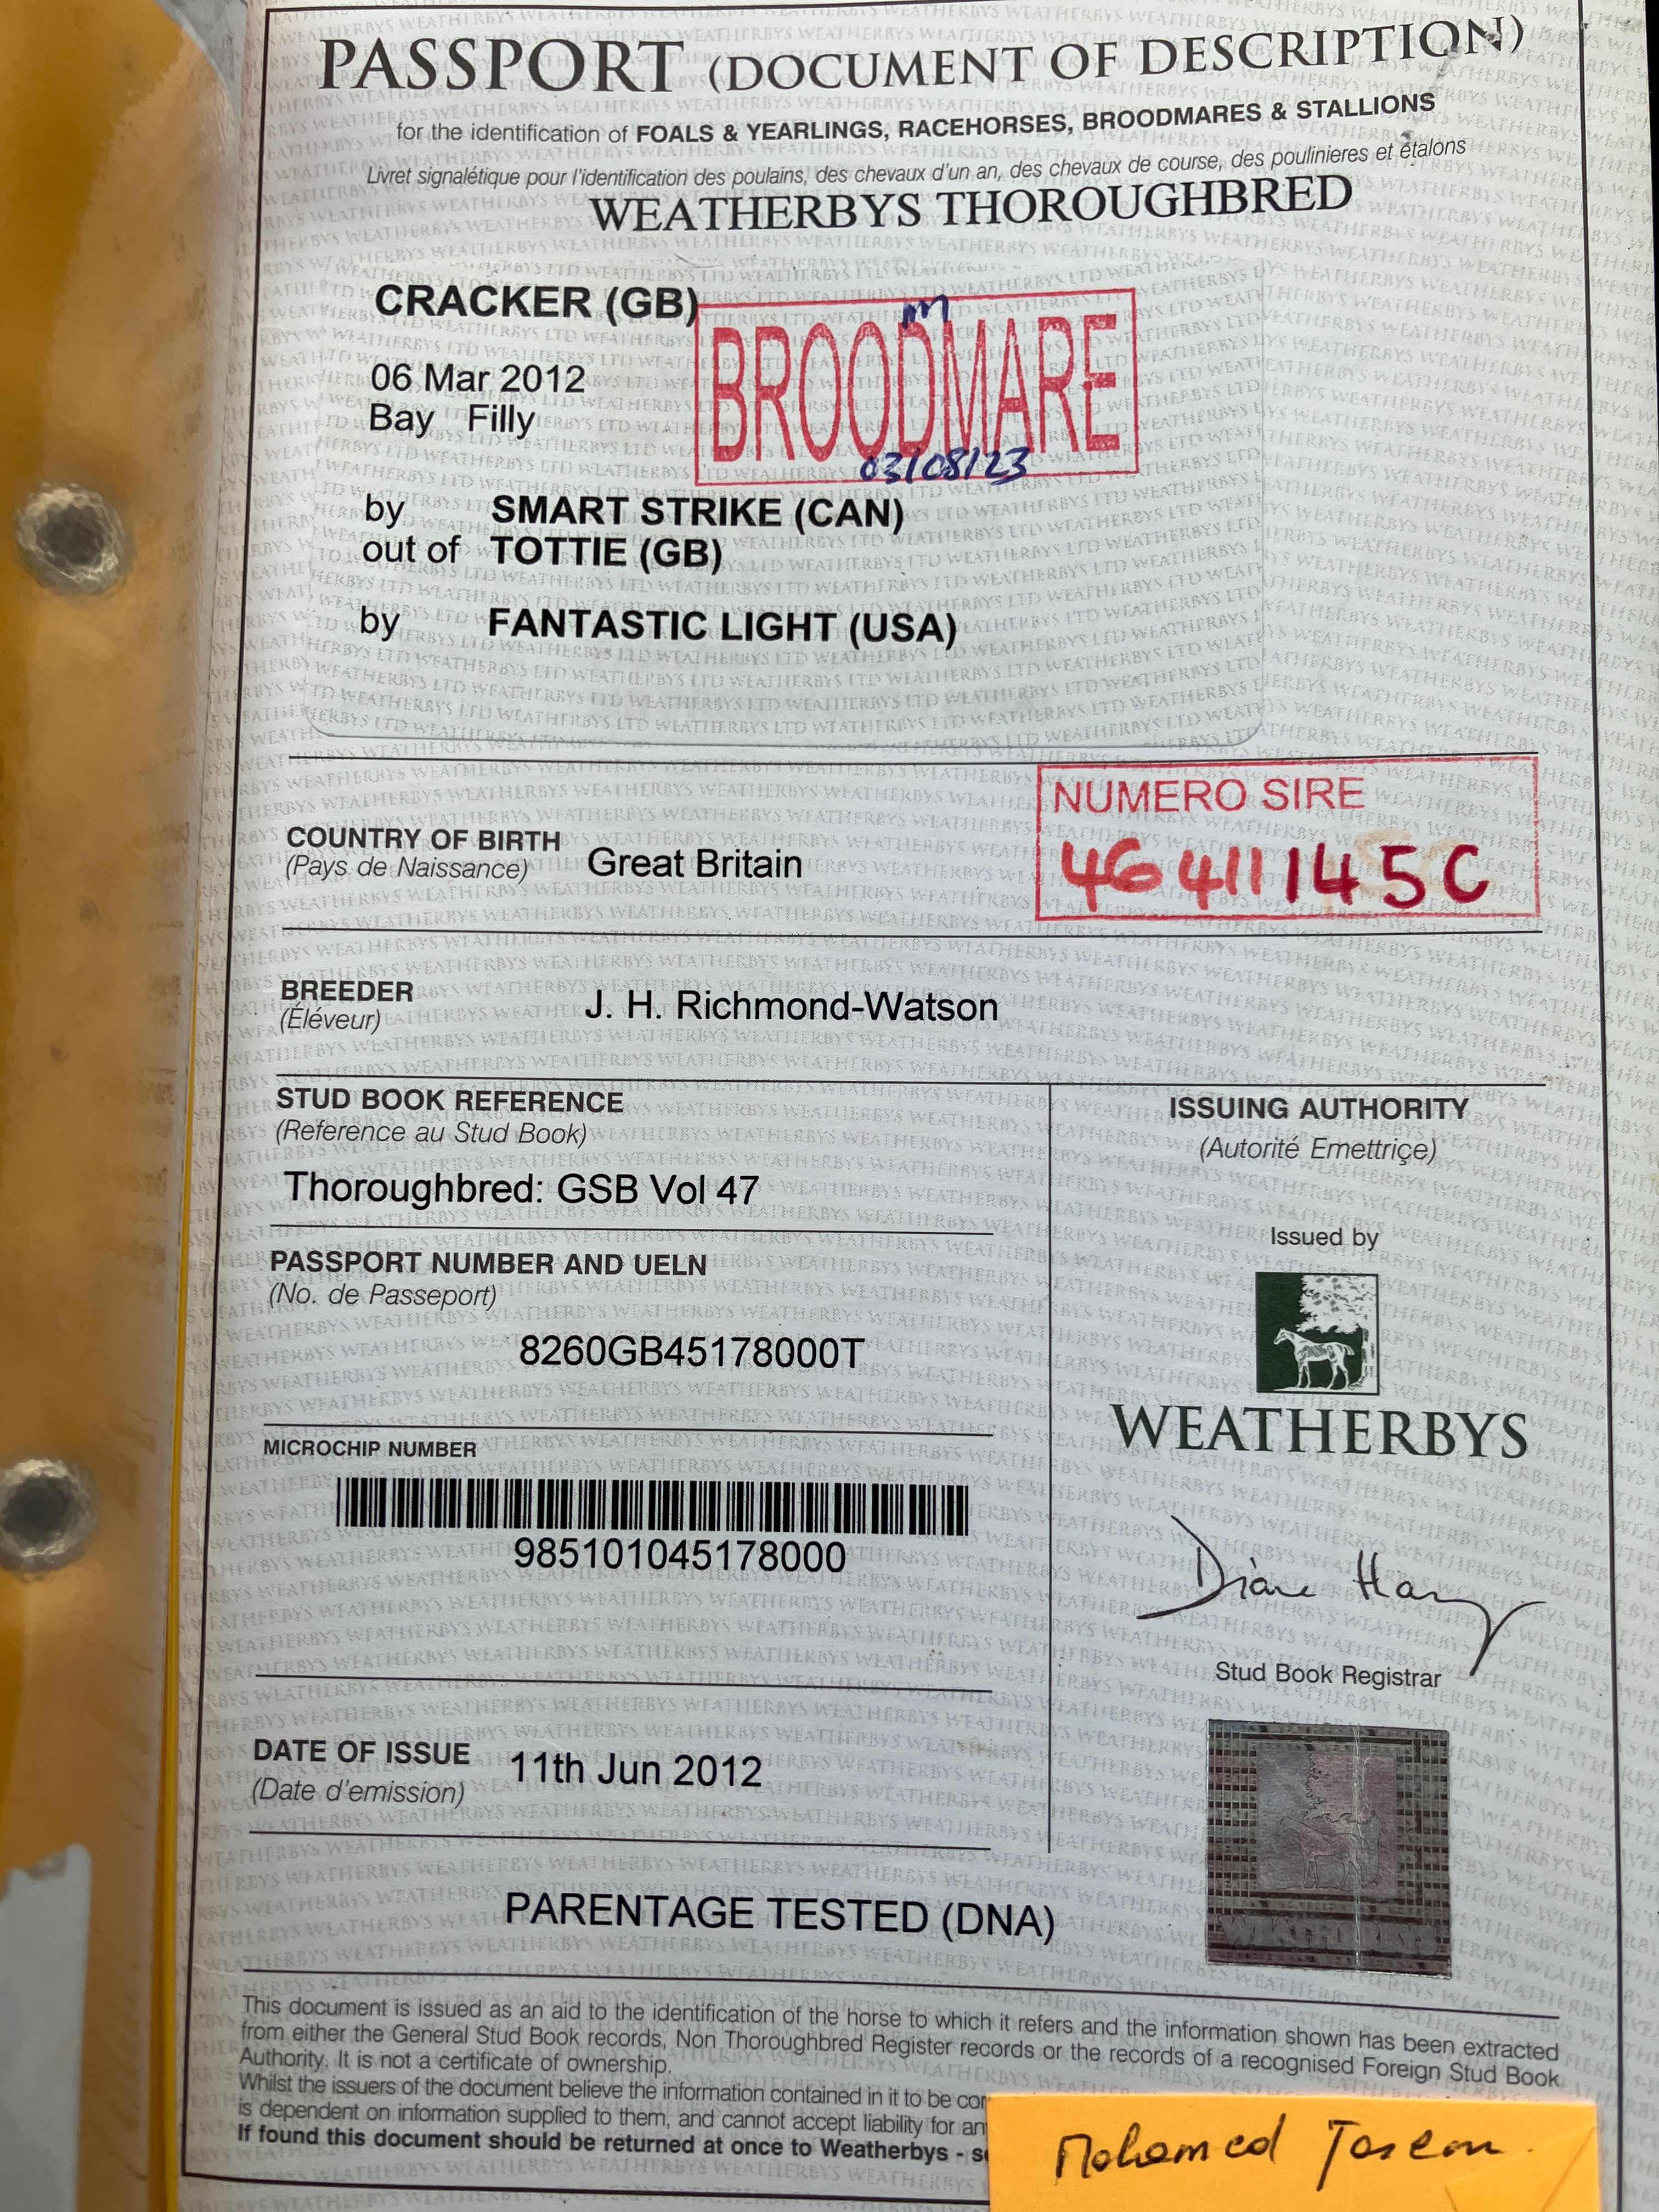 PASSPORT (DOCUMENT OF DESCRIPTION)
for the identification of FOALS & YEARLINGS, RACEHORSES, BROODMARES & STALLIONS
Livret signalétique pour l'identification des poulains, des chevaux d'un an, des chevaux de course, des poulinieres et étalons
WEATHERBYS THOROUGHBRED
CRACKER (GB)
BROODMARE
03/08/23
06 Mar 2012
Bay Filly
by SMART STRIKE (CAN)
out of TOTTIE (GB)
by FANTASTIC LIGHT (USA)
NUMERO SIRE
46411145C
COUNTRY OF BIRTH
(Pays de Naissance)
Great Britain
BREEDER
(Éléveur)
J. H. Richmond-Watson
STUD BOOK REFERENCE
(Reference au Stud Book)
Thoroughbred: GSB Vol 47
PASSPORT NUMBER AND UELN
(No. de Passeport)
8260GB45178000T
MICROCHIP NUMBER
985101045178000
DATE OF ISSUE
(Date d'emission)
11th Jun 2012
PARENTAGE TESTED (DNA)
ISSUING AUTHORITY
(Autorité Emettriçe)
Issued by
WEATHERBYS
Diane Han
Stud Book Registrar
WEATHERBYS
This document is issued as an aid to the identification of the horse to which it refers and the information shown has been extracted
from either the General Stud Book records, Non Thoroughbred Register records or the records of a recognised Foreign Stud Book
Authority. It is not a certificate of ownership.
Whilst the issuers of the document believe the information contained in it to be cor
is dependent on information supplied to them, and cannot accept liability for an
If found this document should be returned at once to Weatherbys - s
Mohamed